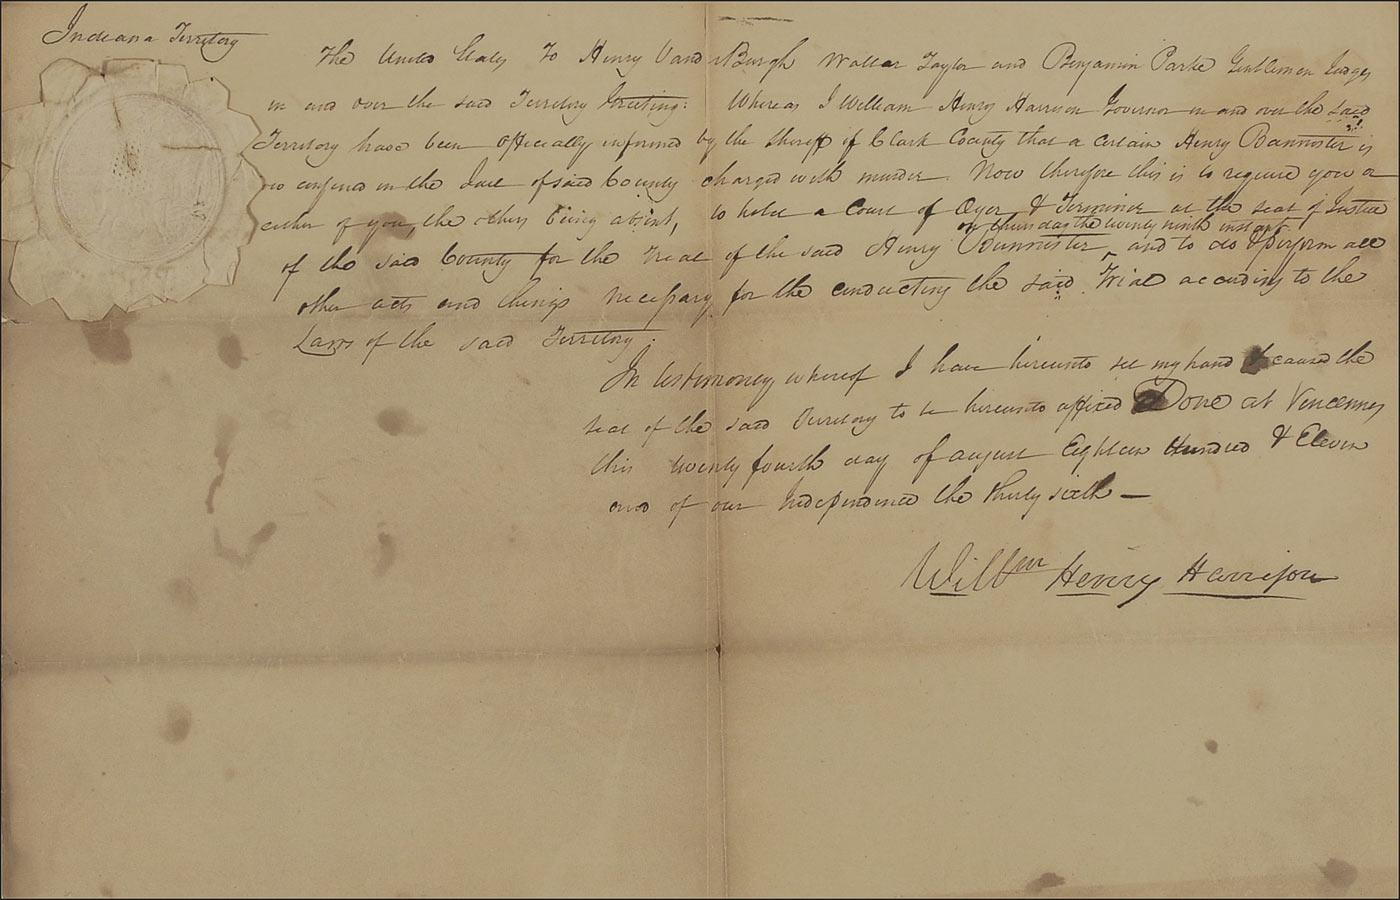 Indiana Territory
The United States To Henry Vand erBurgh Waller Taylor and Benjamin Parke Gentlemen Judges
in and over the said Territory Greeting: Whereas I William Henry Harrison Governor in and over the said
Territory have been officially informed by the sheriff of Clark County that a certain Henry Bannister is
now confined in the Jail of said County charged with murder. Now therefore this is to require you or
either of you, the others being absent, to hold a Court of Oyer & Terminer at the seat of Justice
on thursday the twenty ninth instant
of the said County for the Trial of the said Henry Bannister, and to do & perform all
other acts and things necessary for the conducting the said Trial according to the
Laws of the said Territory.
In testimoney whereof I have hereunto set my hand & caused the
seal of the said Territory to be hereunto affixed Done at Vincennes
this twenty fourth day of august Eighteen Hundred & Eleven
and of our Independence the thirty sixth —
Will^m Henry Harrison